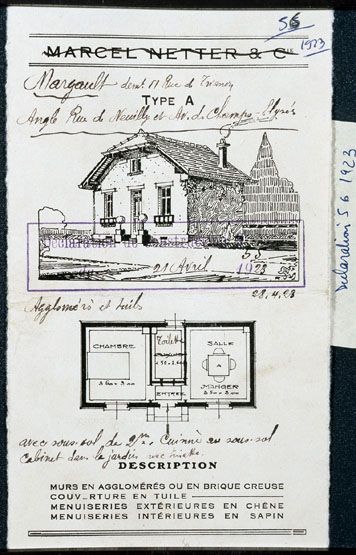 56
1923
MARCEL NETTER & Cie
Margault demt 11 Rue de
TYPE A
Angle Rue de Neuilly et Av. des Champs-Elysées
Déclaration de
21 Avril 1923
28.4.23
Agglomérés et tuils
CHAMBRE
Toilette
SALLE
A
MANGER
ENTRÉE
avec sous-sol de 2m. Cuisine au sous-sol
cabinet dans le jardin avec
DESCRIPTION
MURS EN AGGLOMÉRÉS OU EN BRIQUE CREUSE
COUVERTURE EN TUILE
MENUISERIES EXTÉRIEURES EN CHÊNE
MENUISERIES INTÉRIEURES EN SAPIN
Déclaration 56 1923